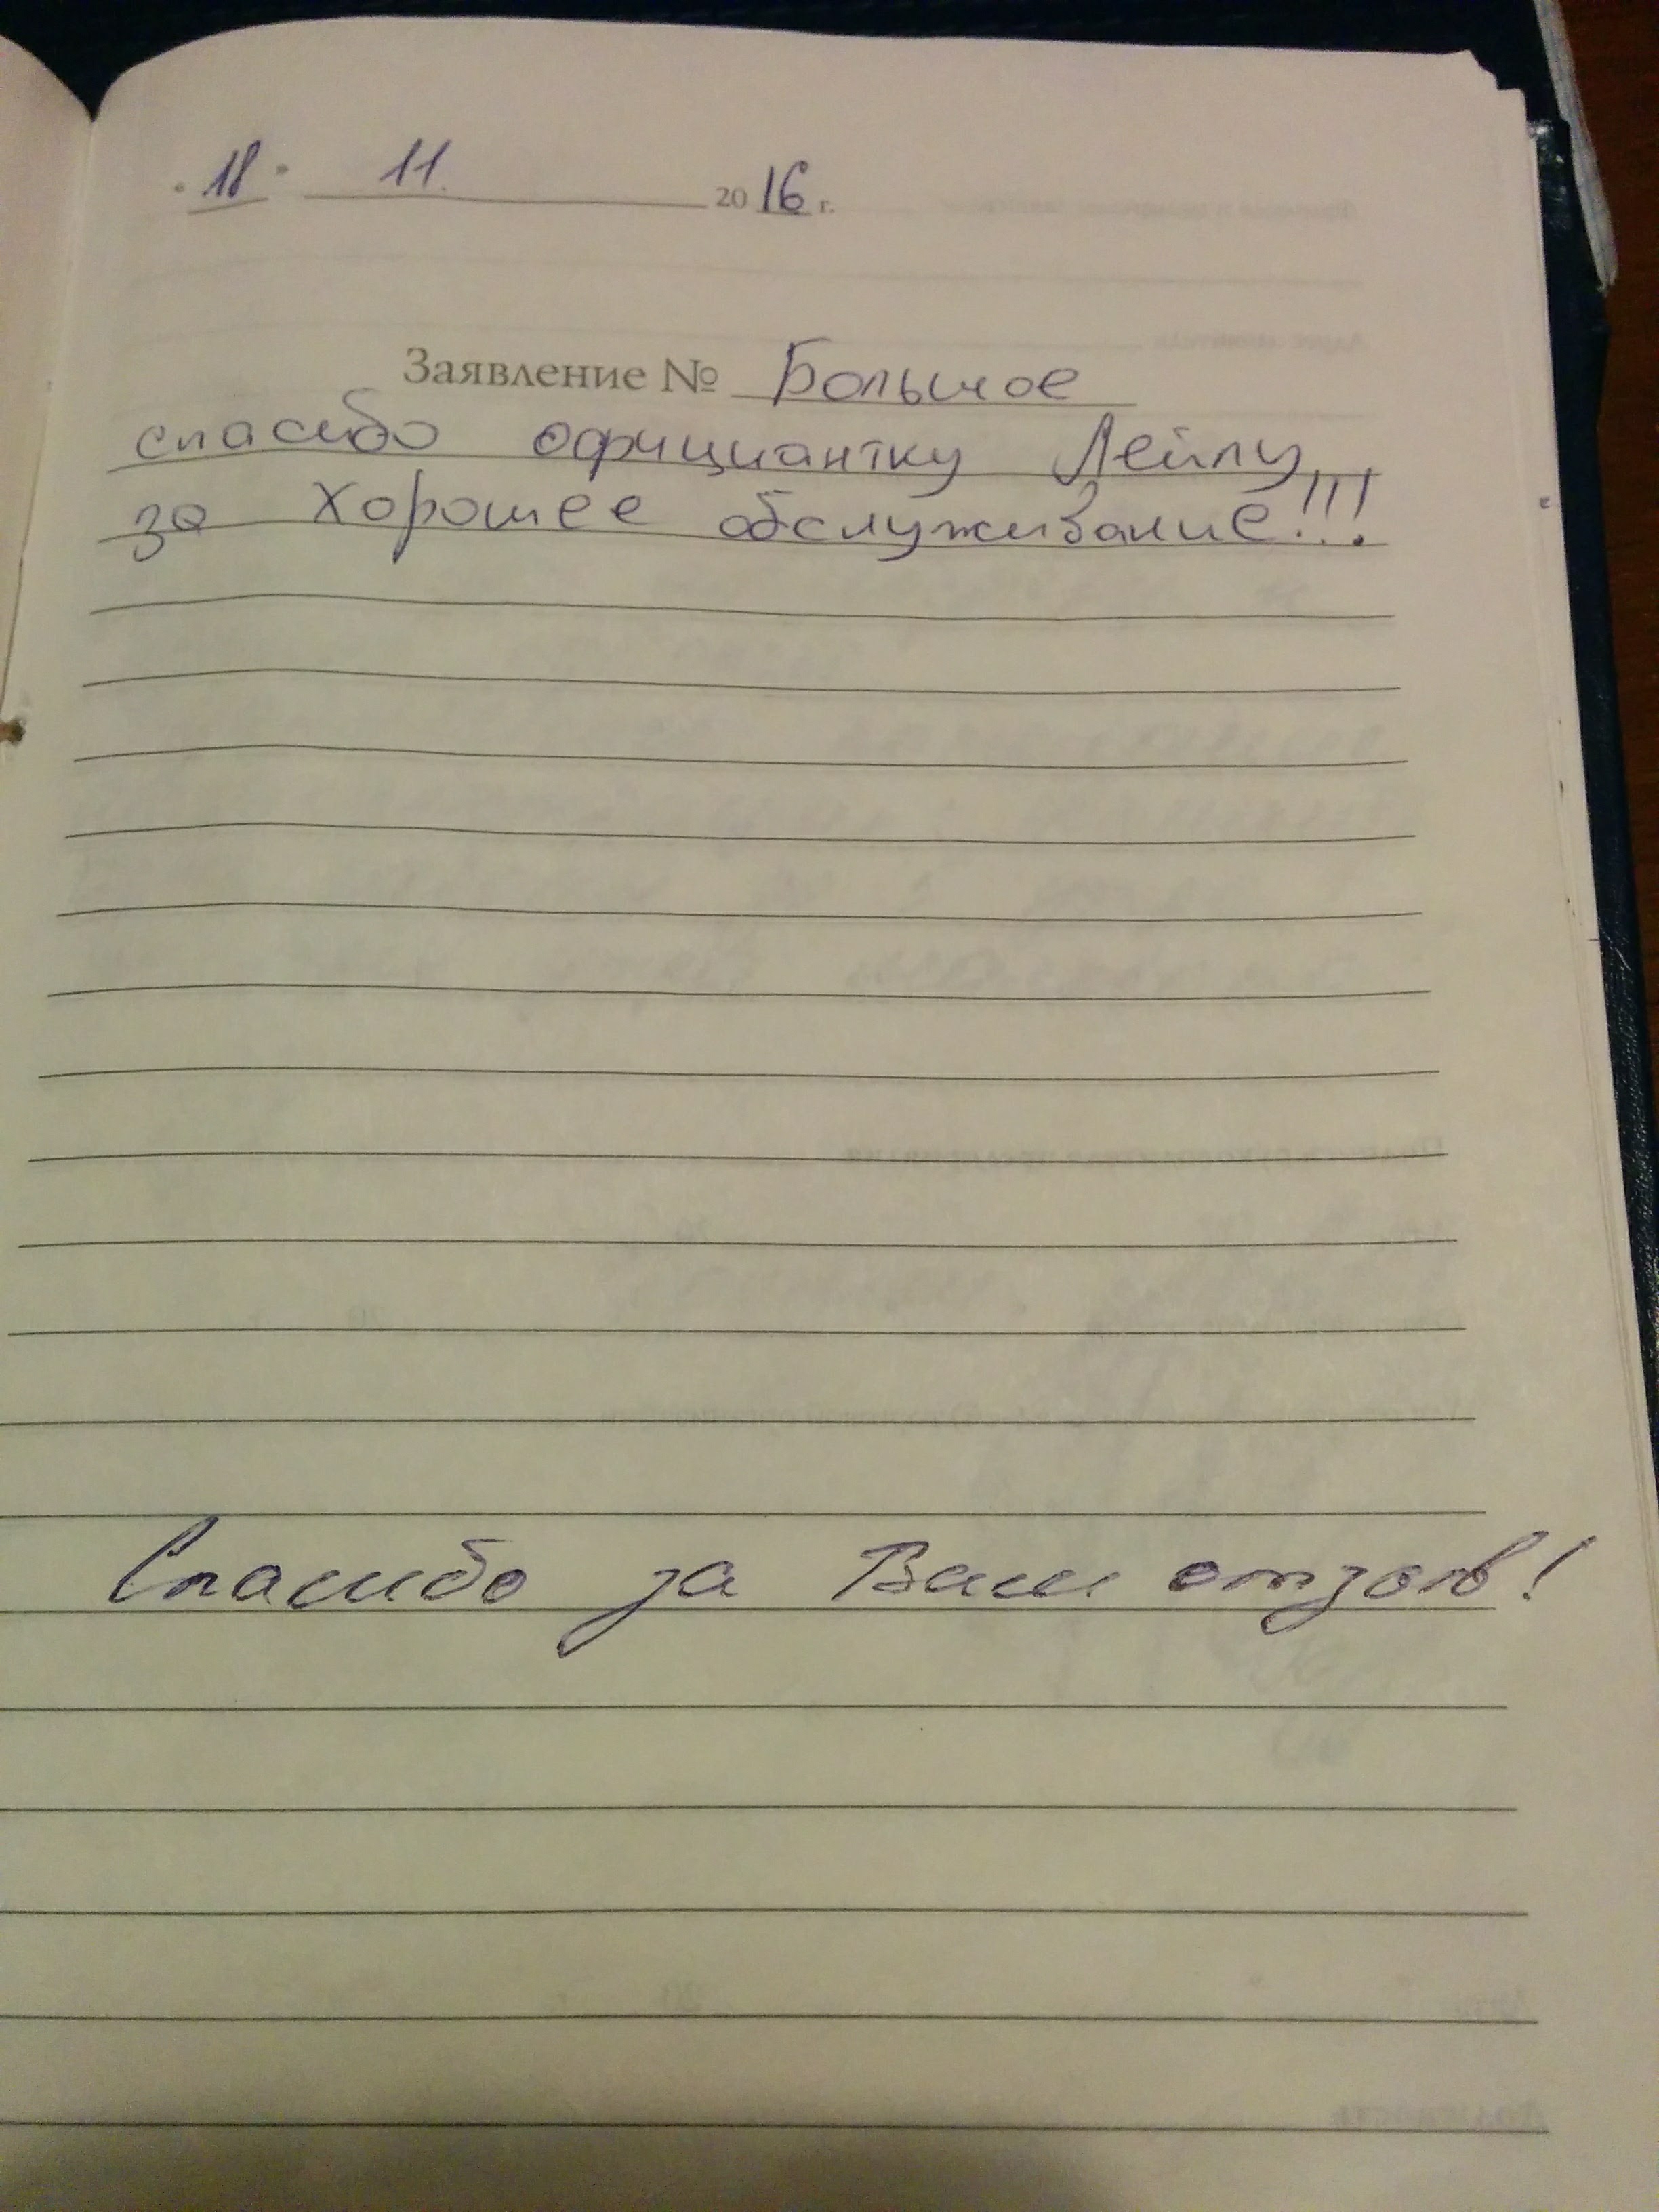 "18" 11. 2016 г.
Заявление № Большое
спасибо официантку Лейлу
за хорошее обслуживание!!!
Спасибо за Ваш отзыв!